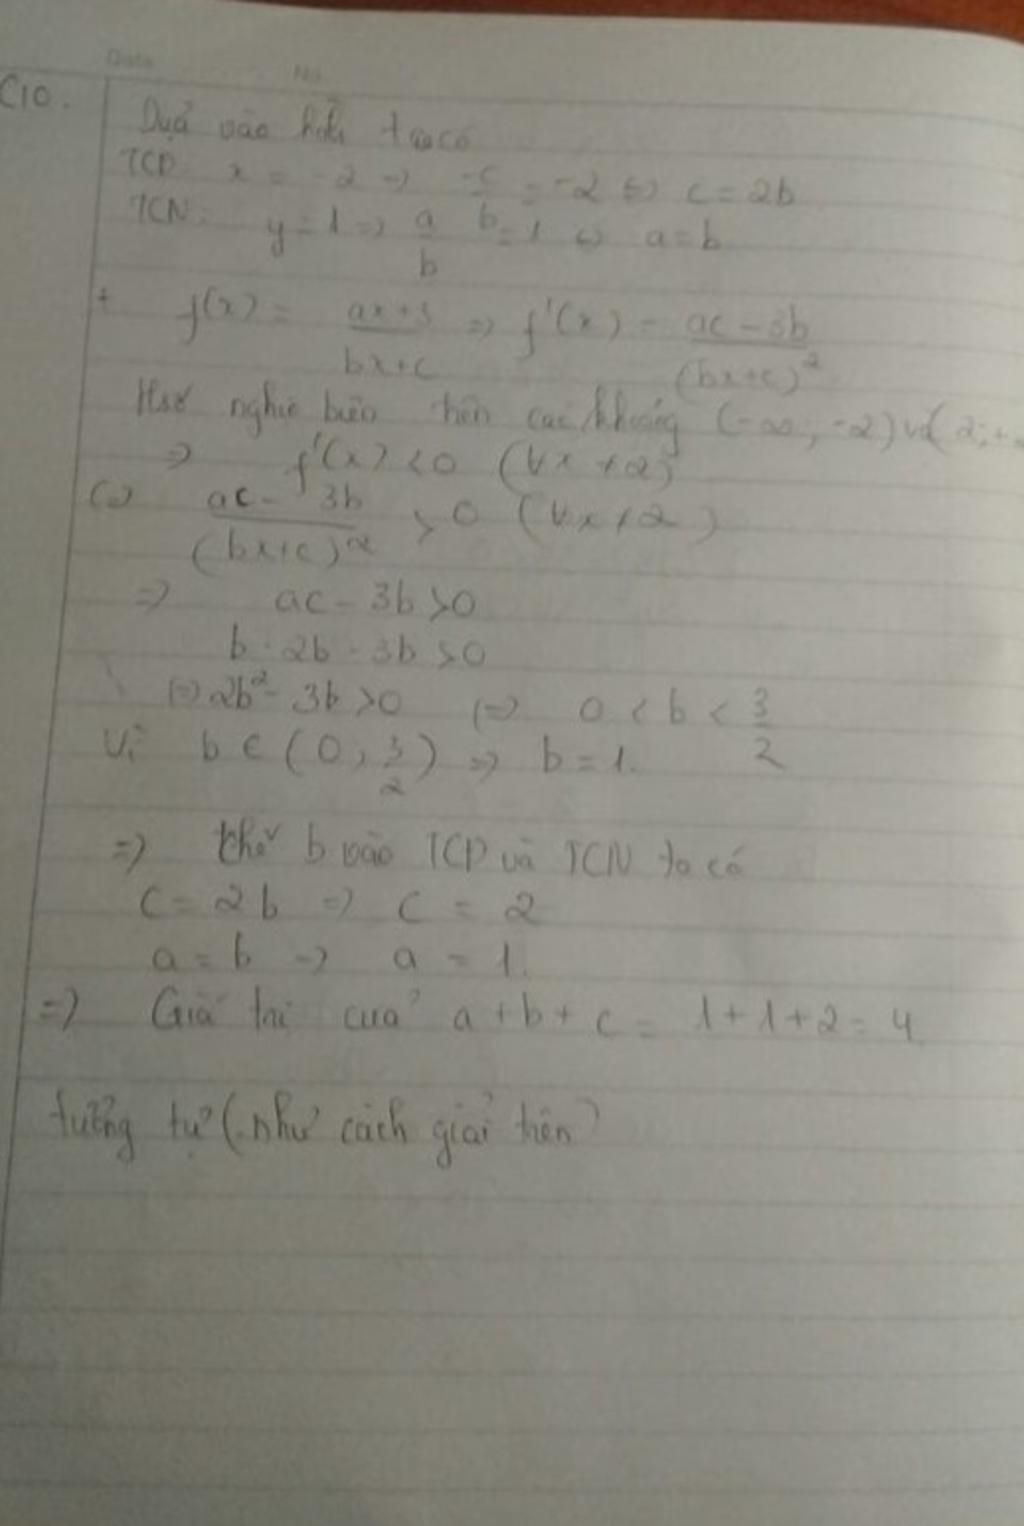 Date No.
C10.
Dựa vào hình ta có
TCD: x = -2 => -c/b = -2 <=> c = 2b
TCN: y = 1 => a/b = 1 <=> a = b
+ f(x) = (ax+3)/(bx+c) => f'(x) = (ac-3b)/(bx+c)²
nghịc biến trên các khoảng (-∞; -2) và (2; +
=> f'(x) < 0 (∀x ≠ 2)
<=> (ac - 3b)/(bx+c)² > 0 (∀x ≠ 2)
=> ac - 3b > 0
b . 2b - 3b > 0
<=> 2b² - 3b > 0 <=> 0 < b < 3/2
Vì b ∈ (0; 3/2) => b = 1.
=> thế b vào TCD và TCN ta có
c = 2b => c = 2
a = b -> a = 1.
=> Giá trị của a + b + c = 1 + 1 + 2 = 4
tường tự (như cách giải trên)